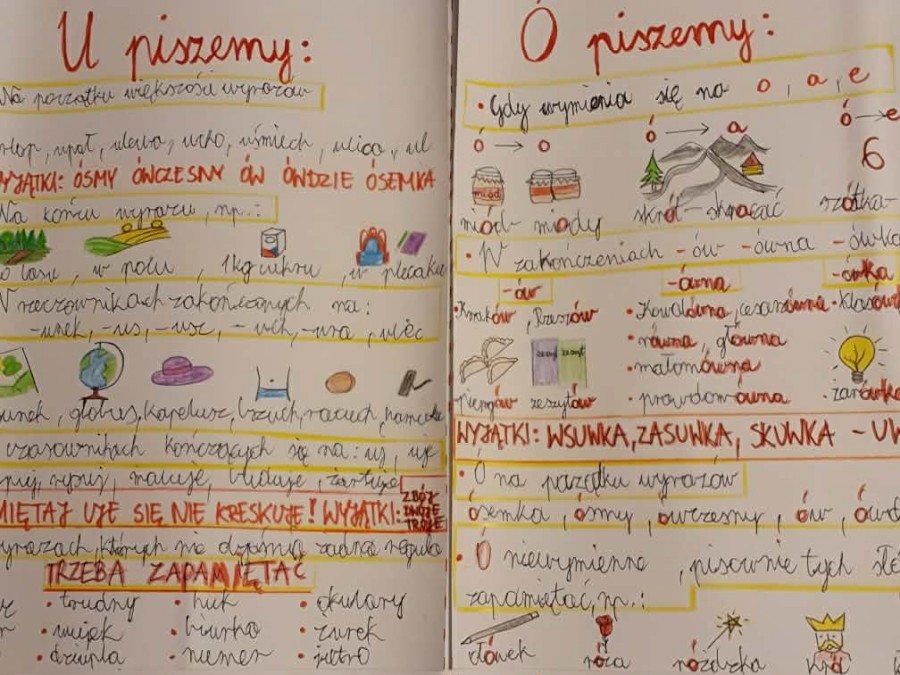 U piszemy:
Na początku większości wyrazów
upał, ulewa, ucho, uśmiech, ulica, ul
WYJĄTKI: ÓSMY ÓWCZESNY ÓW ÓWDZIE ÓSEMKA
Na końcu wyrazu, np.:
lasu, w polu, 1 kg cukru, w plecaku
W rzeczownikach zakończonych na:
-unek, -us, -usz, -uch, -ura, -ulec
globus, kapelusz, brzuch, racuch
czasownikach kończących się na: uj, uje
maluje, buduje, żartuje
PAMIĘTAJ UJE SIĘ NIE KRESKUJE! WYJĄTKI:
ZBÓJ
DWÓJE
TRÓJE
wyrazach, których nie dopisano żadna reguła
TRZEBA ZAPAMIĘTAĆ
• trudny • huk • okulary
• wujek • biurko • żurek
• dziupla • numer • jutro
Ó piszemy:
• Gdy wymienia się na o, a, e
ó → o ó → a ó → e
miód
miód - miody skrót - skracać
6
• W zakończeniach -ów -ówna -ówka
-ów -ówna -ówka
• Kraków, Rzeszów • Kowalówna, cesarówna • Klasówka
• równa, główna
• małomówna
zeszyt zeszyt
pierogów zeszytów • prawdomówna żarówka
WYJĄTKI: WSUWKA, ZASUWKA, SKUWKA -
• Ó na początku wyrazów
ósemka, ósmy, ówczesny, ów,
• Ó niewymienne, pisownię tych
zapamiętać, np.:
ołówek róża różdżka król